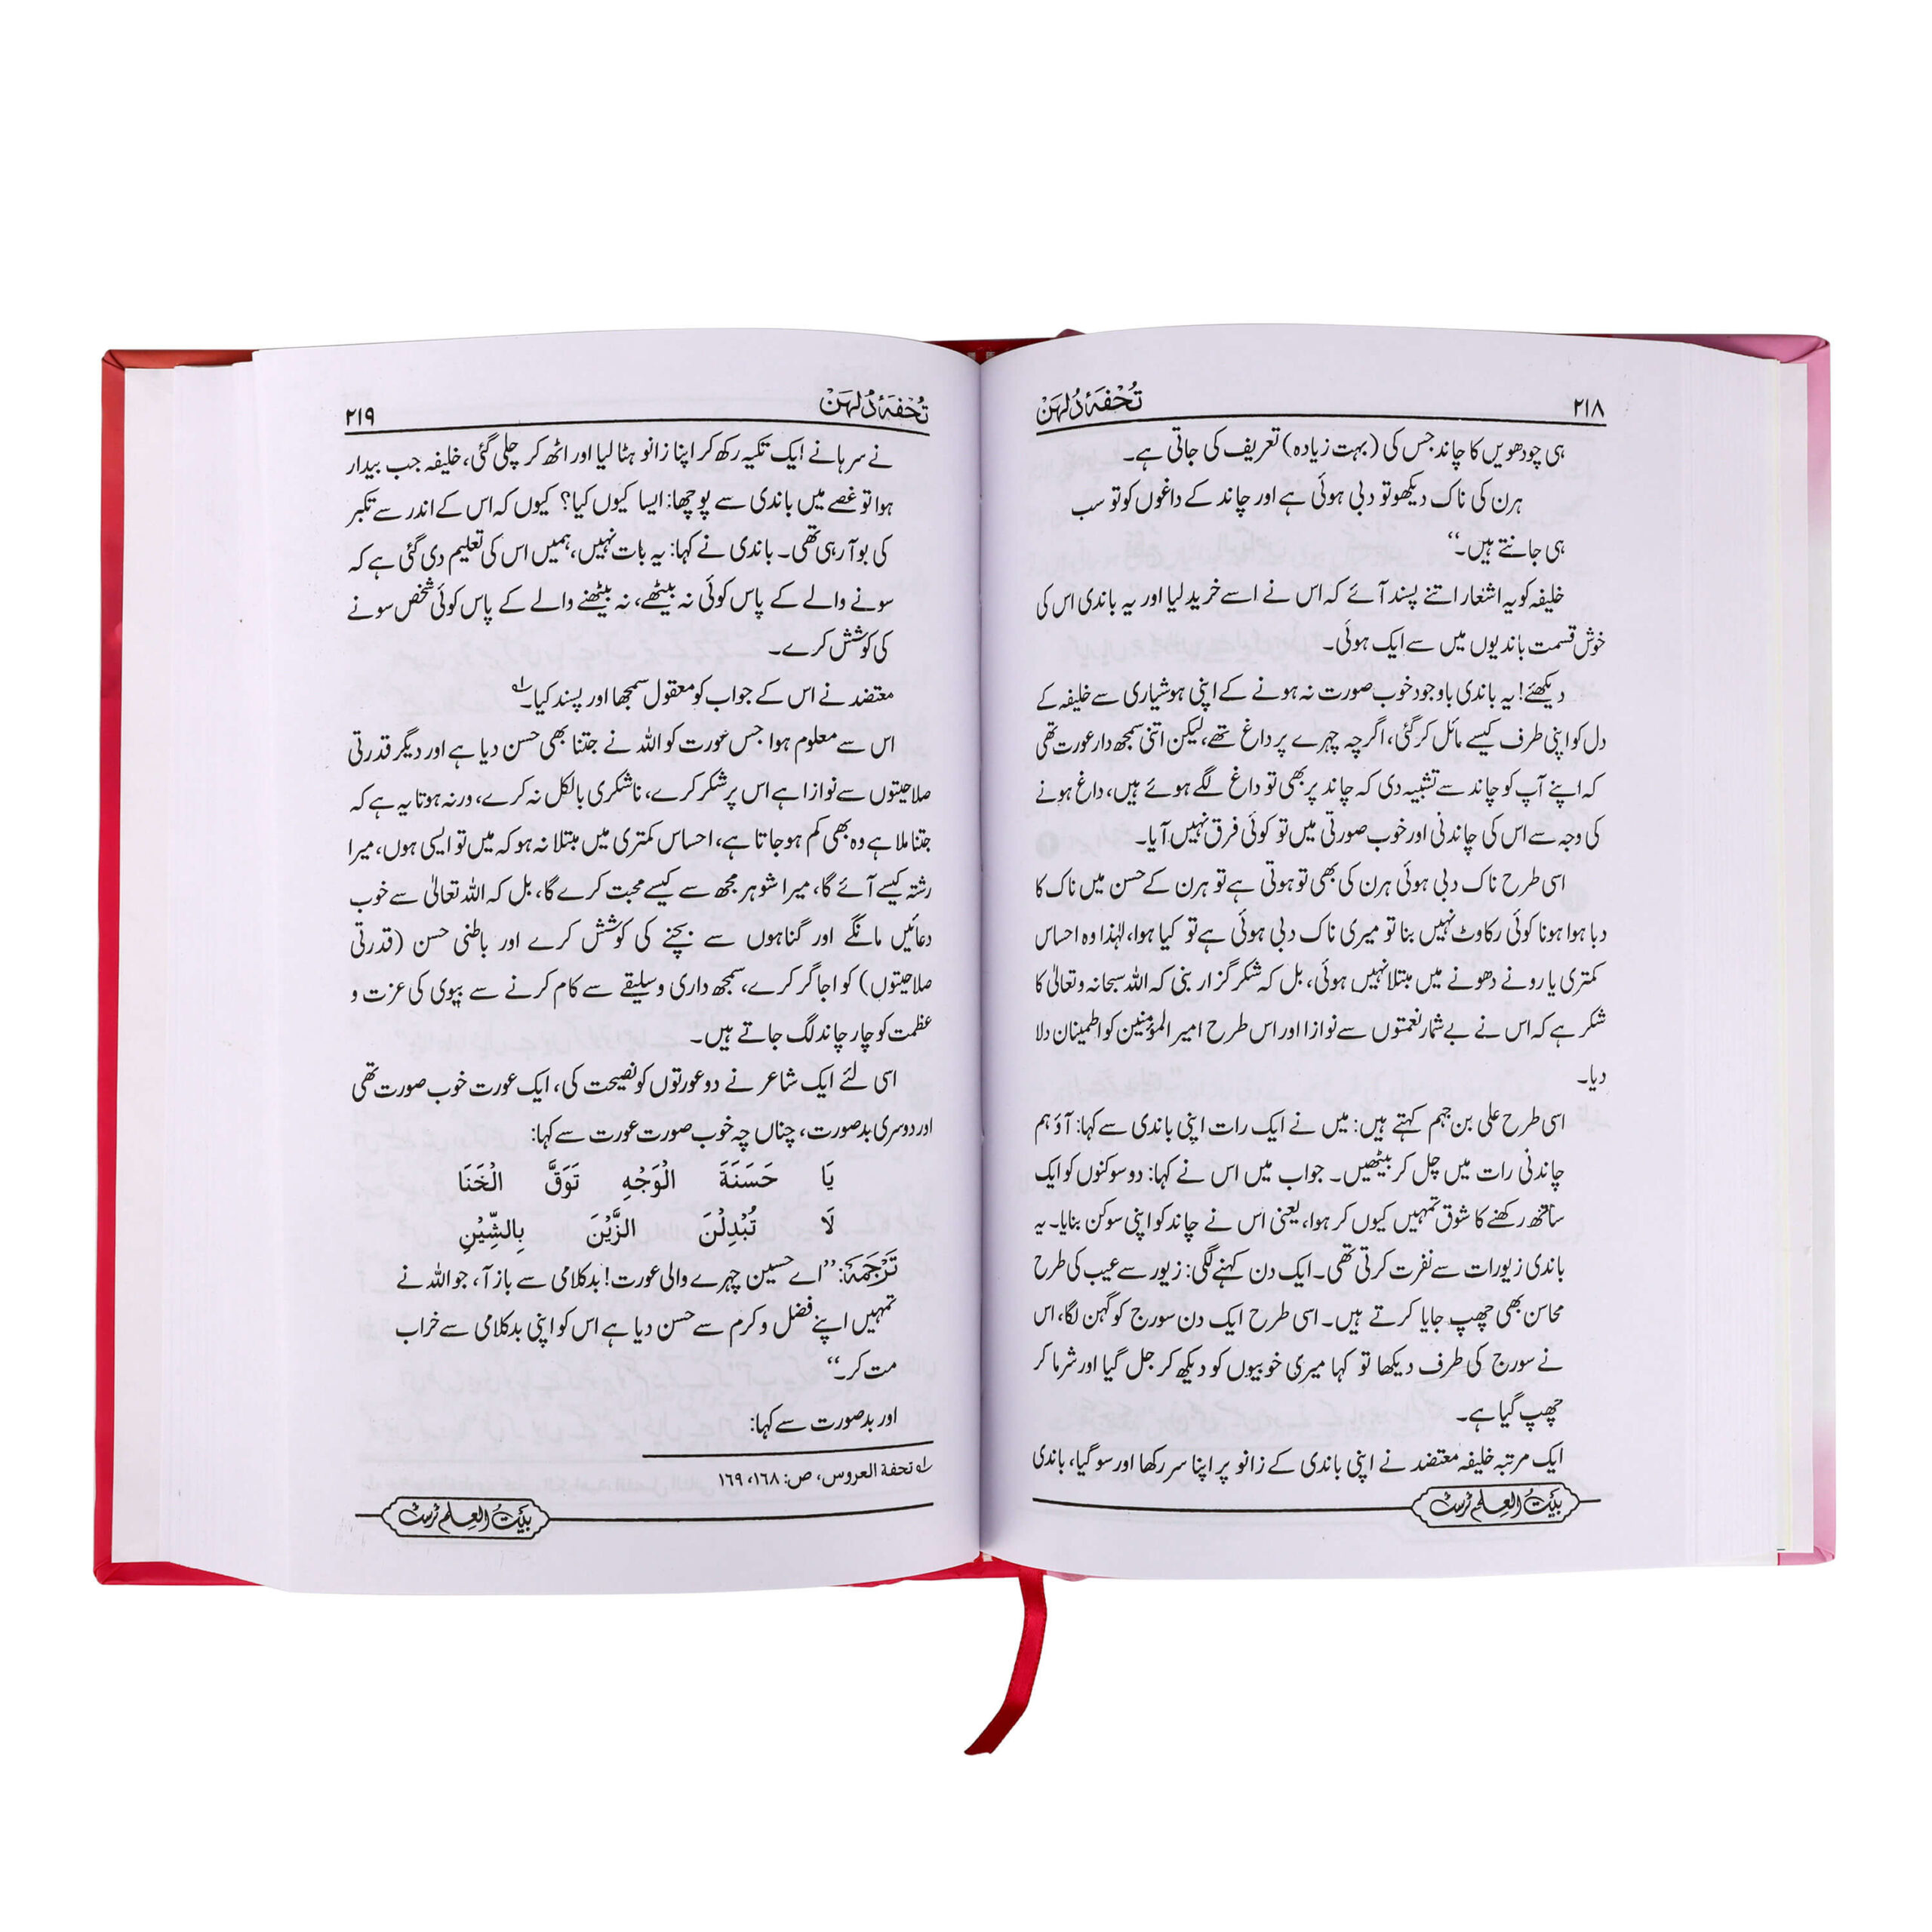 ٢١٨ تُحفۂ دُلہن
ہی چودھویں کا چاند جس کی (بہت زیادہ) تعریف کی جاتی ہے۔
ہرن کی ناک دیکھو تو دبی ہوئی ہے اور چاند کے داغوں کو تو سب
ہی جانتے ہیں۔“
خلیفہ کو یہ اشعار اتنے پسند آئے کہ اس نے اسے خرید لیا اور یہ باندی اس کی
خوش قسمت باندیوں میں سے ایک ہوئی۔
دیکھئے! یہ باندی باوجود خوب صورت نہ ہونے کے اپنی ہوشیاری سے خلیفہ کے
دل کو اپنی طرف کیسے مائل کر گئی، اگرچہ چہرے پر داغ تھے، لیکن اتنی سمجھ دار عورت تھی
کہ اپنے آپ کو چاند سے تشبیہ دی کہ چاند پر بھی تو داغ لگے ہوئے ہیں، داغ ہونے
کی وجہ سے اس کی چاندنی اور خوب صورتی میں تو کوئی فرق نہیں آیا۔
اسی طرح ناک دبی ہوئی ہرن کی بھی تو ہوتی ہے تو ہرن کے حسن میں ناک کا
دبا ہوا ہونا کوئی رکاوٹ نہیں بنا تو میری ناک دبی ہوئی ہے تو کیا ہوا، لہٰذا وہ احساس
کمتری یا رونے دھونے میں مبتلا نہیں ہوئی، بل کہ شکر گزار بنی کہ اللہ سبحانہ وتعالیٰ کا
شکر ہے کہ اس نے بے شمار نعمتوں سے نوازا اور اس طرح امیر المؤمنین کو اطمینان دلا
دیا۔
اسی طرح علی بن جہم کہتے ہیں: میں نے ایک رات اپنی باندی سے کہا: آؤ ہم
چاندنی رات میں چل کر بیٹھیں۔ جواب میں اس نے کہا: دو سوکنوں کو ایک
ساتھ رکھنے کا شوق تمہیں کیوں کر ہوا، یعنی اس نے چاند کو اپنی سوکن بنایا۔ یہ
باندی زیورات سے نفرت کرتی تھی۔ ایک دن کہنے لگی: زیور سے عیب کی طرح
محاسن بھی چھپ جایا کرتے ہیں۔ اسی طرح ایک دن سورج کو گہن لگا، اس
نے سورج کی طرف دیکھا تو کہا میری خوبیوں کو دیکھ کر جل گیا اور شرما کر
چھپ گیا ہے۔
ایک مرتبہ خلیفہ معتضد نے اپنی باندی کے زانو پر اپنا سر رکھا اور سو گیا، باندی
بیَتُ العِلم ٹرسٹ
تُحفۂ دُلہن ٢١٩
نے سرہانے ایک تکیہ رکھ کر اپنا زانو ہٹا لیا اور اٹھ کر چلی گئی، خلیفہ جب بیدار
ہوا تو غصے میں باندی سے پوچھا: ایسا کیوں کیا؟ کیوں کہ اس کے اندر سے تکبر
کی بو آ رہی تھی۔ باندی نے کہا: یہ بات نہیں، ہمیں اس کی تعلیم دی گئی ہے کہ
سونے والے کے پاس کوئی نہ بیٹھے، نہ بیٹھنے والے کے پاس کوئی شخص سونے
کی کوشش کرے۔
معتضد نے اس کے جواب کو معقول سمجھا اور پسند کیا۔ ؎۱
اس سے معلوم ہوا جس عورت کو اللہ نے جتنا بھی حسن دیا ہے اور دیگر قدرتی
صلاحیتوں سے نوازا ہے اس پر شکر کرے، ناشکری بالکل نہ کرے، ورنہ ہوتا یہ ہے کہ
جتنا ملا ہے وہ بھی کم ہو جاتا ہے، احساس کمتری میں مبتلا نہ ہو کہ میں تو ایسی ہوں، میرا
رشتہ کیسے آئے گا، میرا شوہر مجھ سے کیسے محبت کرے گا، بل کہ اللہ تعالیٰ سے خوب
دعائیں مانگے اور گناہوں سے بچنے کی کوشش کرے اور باطنی حسن (قدرتی
صلاحیتوں) کو اجاگر کرے، سمجھ داری و سلیقے سے کام کرنے سے بیوی کی عزت و
عظمت کو چار چاند لگ جاتے ہیں۔
اسی لئے ایک شاعر نے دو عورتوں کو نصیحت کی، ایک عورت خوب صورت تھی
اور دوسری بدصورت، چناں چہ خوب صورت عورت سے کہا:
يَا حَسَنَةَ الْوَجْهِ تَوَقَّ الْخَنَا
لَا تُبْدِلْنَ الزَّيْنَ بِالشِّيْنِ
تَرْجَمَہ: ”اے حسین چہرے والی عورت! بدکلامی سے باز آ، جو اللہ نے
تمہیں اپنے فضل و کرم سے حسن دیا ہے اس کو اپنی بدکلامی سے خراب
مت کر۔“
اور بدصورت سے کہا:
؎۱ تحفة العروس، ص: ١٦٨، ١٦٩
بیَتُ العِلم ٹرسٹ